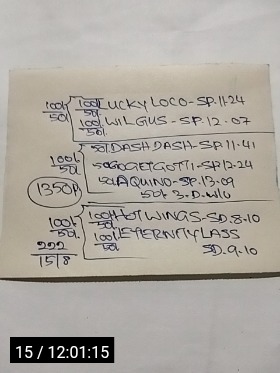 100/50/ 100/50/ LUCKY LOCO - SP. 11.24
100/50/ WILGUS - SP. 12.07
100/50/ 50/ DASH DASH - SP. 11.41
50 GOGETGOTTI - SP. 12.24
1350/ 50/ AQUINO - SP. 13.09
50/ 3.D. W/U
100/50/ 100/50/ HOT WINGS - SD. 8.10
100/50/ ETERNITY LASS
SD. 9.10
222
15/8
15 / 12:01:15